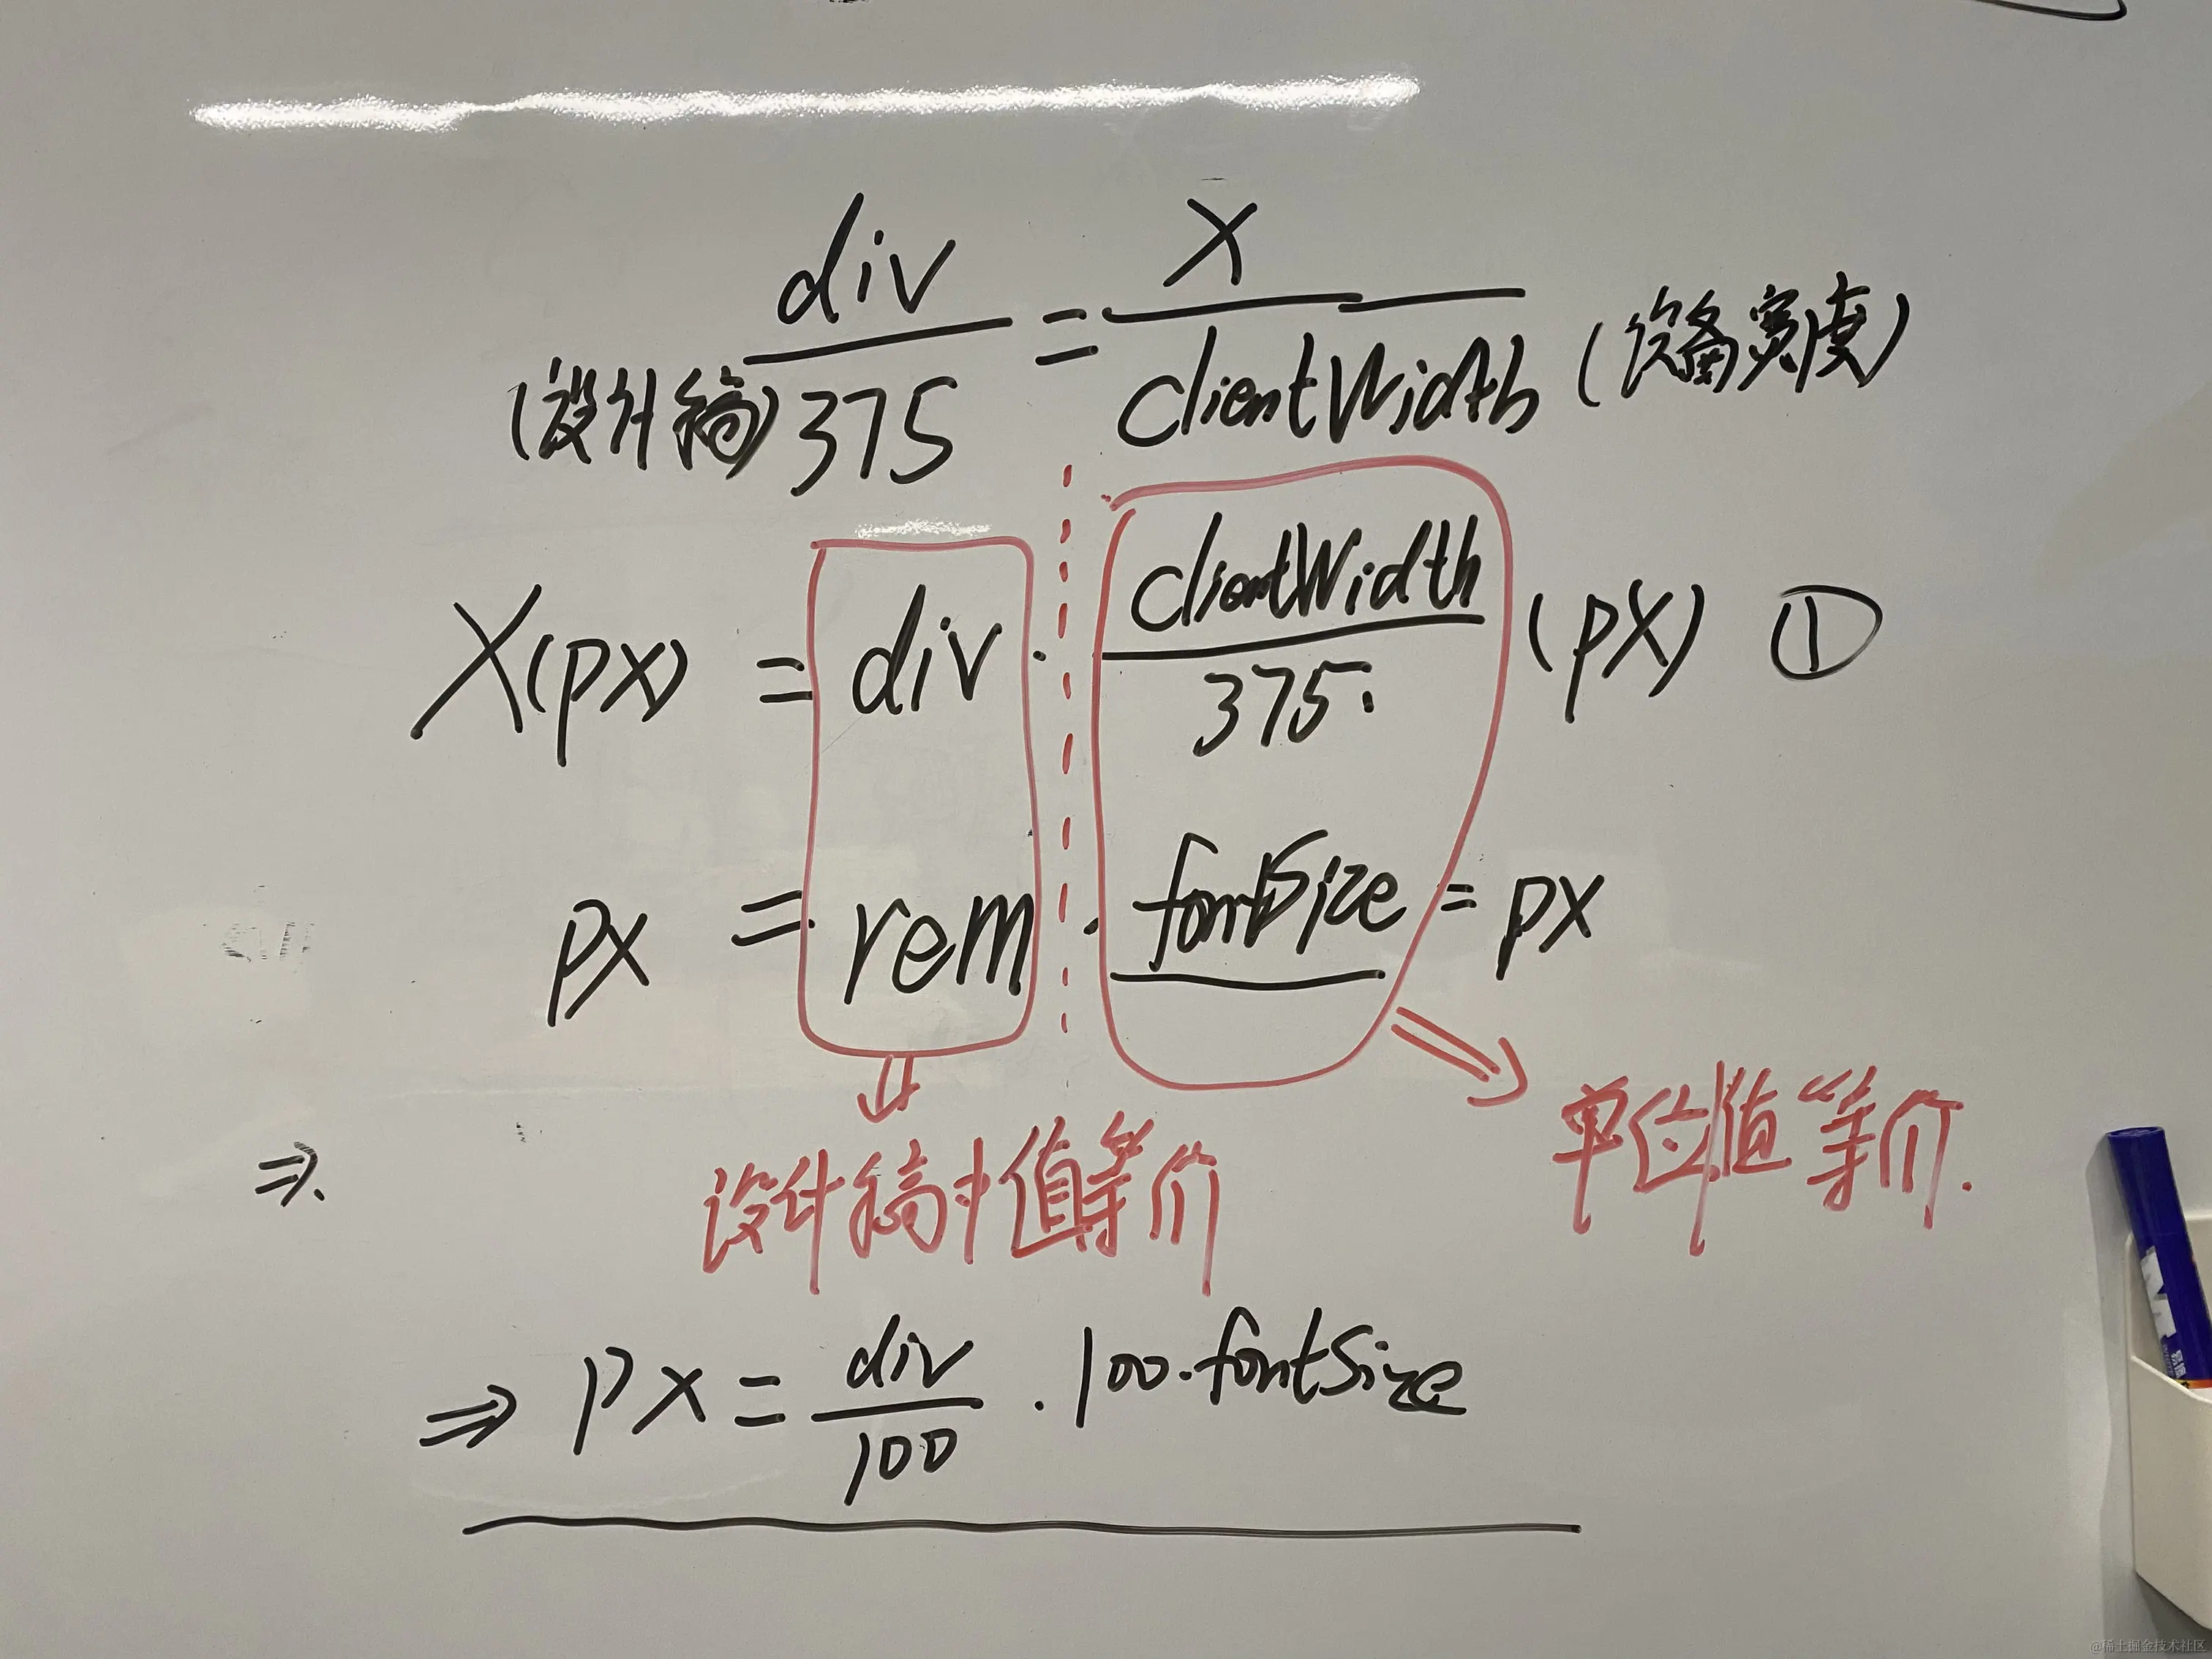 div / 375 = X / clientWidth (设备宽度)
(设计稿)
X(px) = div · clientWidth / 375 (px) ①
px = rem · fontSize = px
单位值等价.
⇒. 设计稿中值等价
⇒ px = div / 100 · 100·fontSize
@稀土掘金技术社区